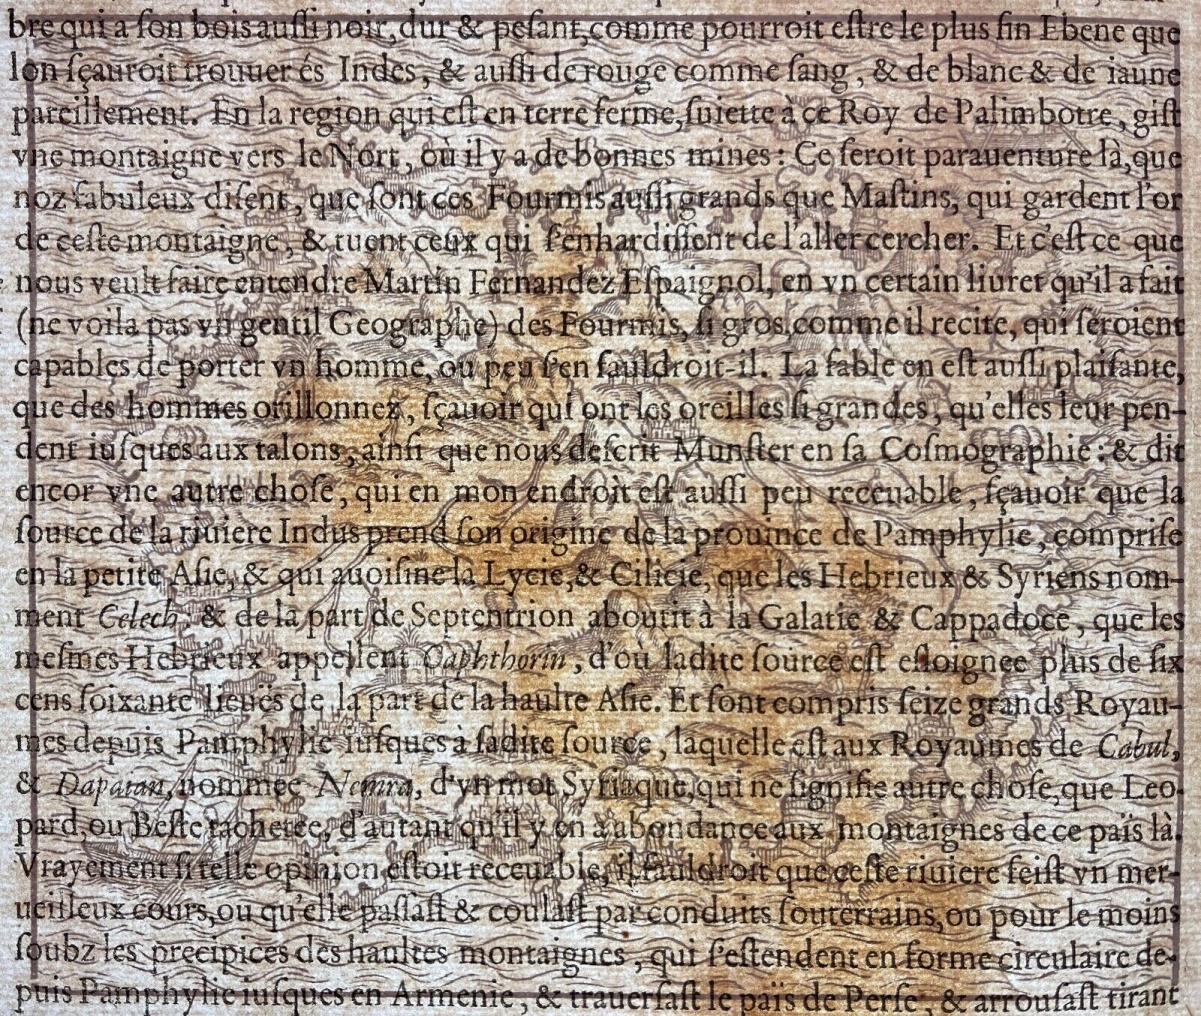 bre qui a ſon bois auſſi noir, dur & peſant, comme pourroit eſtre le plus fin Ebene que
lon ſçauroit trouuer és Indes, & auſſi de rouge comme ſang, & de blanc & de iaune
pareillement. En la region qui eſt en terre ferme, ſuiette à ce Roy de Palimbotre, giſt
vne montaigne vers le Nort, où il y a de bonnes mines: Ce ſeroit parauenture là, que
noz fabuleux diſent, que ſont ces Fourmis auſſi grands que Maſtins, qui gardent l'or
de ceſte montaigne, & tuent ceux qui ſ'enhardiſſent de l'aller cercher. Et c'eſt ce que
nous veult faire entendre Martin Fernandez Eſpaignol, en vn certain liuret qu'il a fait
(ne voila pas vn gentil Geographe) des Fourmis, ſi gros, comme il recite, qui ſeroient
capables de porter vn homme, ou peu ſ'en fauldroit-il. La fable en eſt auſſi plaiſante,
que des hommes orillonnez, ſçauoir qui ont les oreilles ſi grandes, qu'elles leur pen-
dent iuſques aux talons, ainſi que nous deſcrit Munſter en ſa Coſmographie: & dit
encor vne autre choſe, qui en mon endroit eſt auſſi peu receuable, ſçauoir que la
ſource de la riuiere Indus prend ſon origine de la prouince de Pamphylie, compriſe
en la petite Aſie, & qui auoiſine la Lycie, & Cilicie, que les Hebrieux & Syriens nom-
ment Celech, & de la part de Septentrion aboutit à la Galatie & Cappadoce, que les
meſmes Hebrieux appellent Caphthorin, d'où ladite ſource eſt eſloignee plus de ſix
cens ſoixante lieuës de la part de la haulte Aſie. Et ſont compris ſeize grands Royau-
mes depuis Pamphylie iuſques à ſadite ſource, laquelle eſt aux Royaumes de Cabul,
& Dapatan, nommee Nemra, d'vn mot Syriaque, qui ne ſignifie autre choſe, que Leo-
pard, ou Beſte tachetee, d'autant qu'il y en à abondance aux montaignes de ce païs là.
Vrayement ſi telle opinion eſtoit receuable, il fauldroit que ceſte riuiere feiſt vn mer-
ueilleux cours, ou qu'elle paſſaſt & coulaſt par conduits ſouterrains, ou pour le moins
ſoubz les precipices des haultes montaignes, qui ſ'eſtendent en forme circulaire de-
puis Pamphylie iuſques en Armenie, & trauerſaſt le païs de Perſe, & arrouſaſt tirant